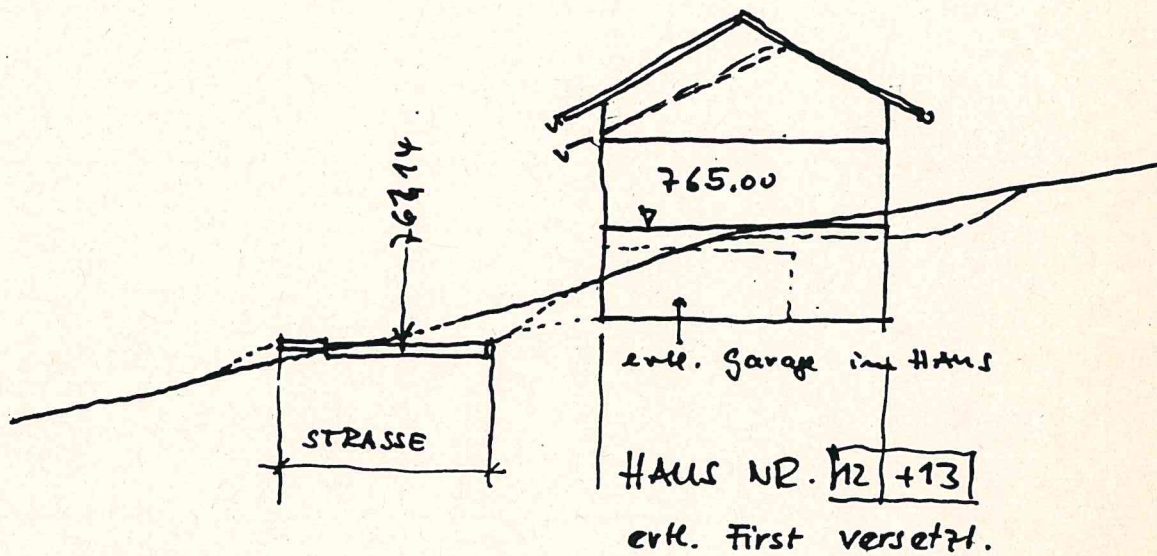 765.00
evtl. Garage im HAUS
STRASSE
HAUS NR. 12 +13
evtl. First versetzt.